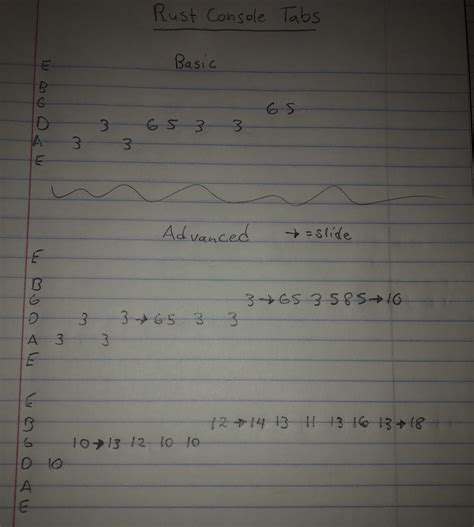 Rust Console Tabs
Basic
E
B
G 6 5
D 3 6 5 3 3
A 3 3
E
Advanced → = slide
E
B
G 3 → 6 5 3 5 8 5 → 10
D 3 3 → 6 5 3 3
A 3 3
E
E
B 12 → 14 13 11 13 16 13 → 18
G 10 → 13 12 10 10
D 10
A
E